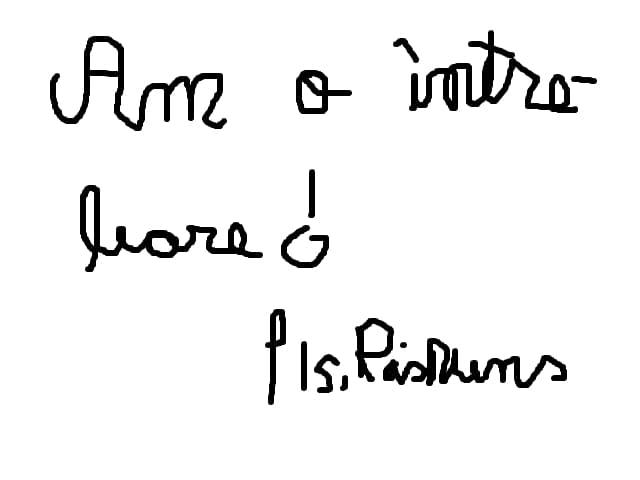 Am o între-
bare
pls, Răspuns